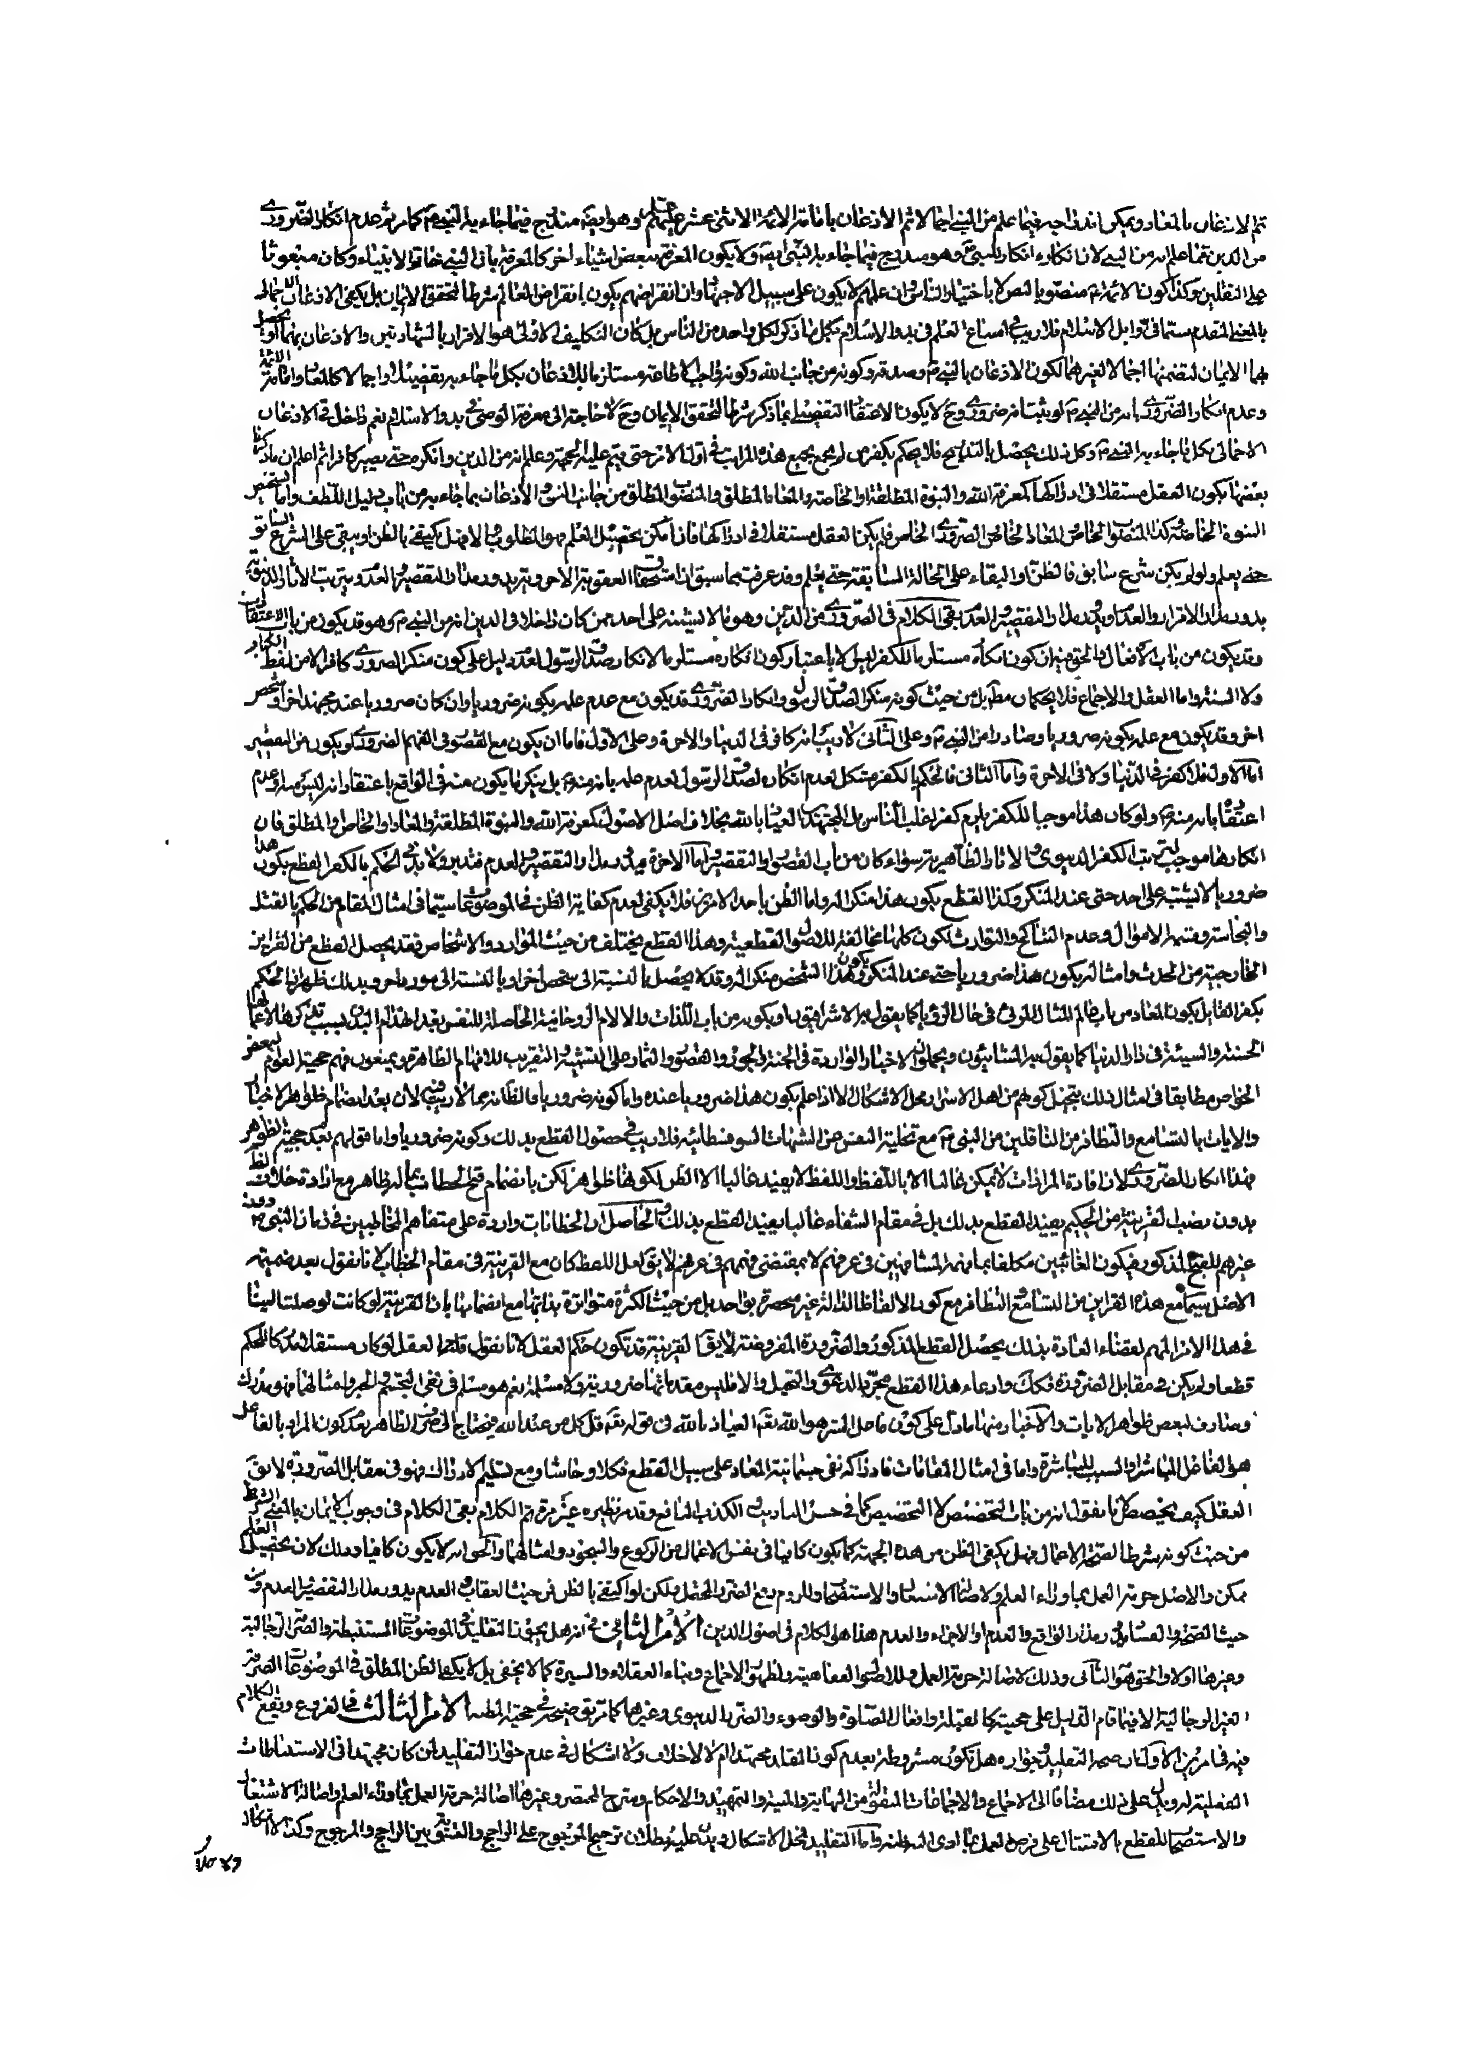 ثم الاذعان بالمعاد ويمكن اندراجه فيما علم من النبي اجمالا ثم الاذعان بامامة الائمة الاثنى عشر عليهم وهو ايضا مندرج فيما جاء به النبي ص كما مر ثم عدم انكار الضروري
من الدين مما علم انه من النبي لان انكاره انكار للنبي ص وهو مندرج فيما جاء به النبي ايضا ولا يكون المعرفة ببعض اشياء اخر كالمعرفة بان النبي خاتم الانبياء وكان مبعوثا
على الثقلين وكذا كون الائمة منصوبا بالنص لا باختيار الناس وان علمهم لا يكون على سبيل الاجتهاد وان انقراضهم يكون بانقراض العالم شرطا لتحقق الايمان بل يكفي الاذعان الاجمالي
بالمعنى المتقدم سيما في اوايل الاسلام فلا ريب في امتناع العلم في بدو الاسلام بكل ما ذكر لكل واحد من الناس بل كان التكليف الاولى هو الاقرار بالشهادتين والاذعان بهما اولا يحصل
بهما الايمان لتضمنها اجمالا لغيرهما لكون الاذعان بالنبي ص وصدقه وكونه من جانب الله وكونه واجب الاطاعة مستلزما للاذعان بكل ما جاء به تفصيلا واجمالا كالمعاد وامامة الائمة
وعدم انكار الضروري بانه من النبي ص لو ثبت انه ضروري وح لا يكون الاعتقاد التفصيلي بما ذكر شرطا لتحقق الايمان وح لا حاجة الى معرفة الوصي في بدو الاسلام نعم داخل في الاذعان
الاجمالي بكل ما جاء به النبي ص وكل ذلك يحصل بالتدريج فلا يحكم بكفر من لم يجمع جميع هذه المراتب في اول الامر حتى يتم عليه الحجة وعلم انه من الدين وانكره حتى يصير كافرا ثم اعلم ان ما ذكرنا
بعضها يكون العقل مستقلا في ادراكها كمعرفة الله والنبوة المطلقة والخاصة والمعاد المطلق والمنصوب المطلق من جانب النبي والاذعان بما جاء به من باب دليل اللطف واما تشخيص
النبوة الخاصة وكذا المنصوب الخاص والمعاد الخاص والضروري الخاص فلم يكن العقل مستقلا في ادراكها فان امكن تحصيل العلم فهو المطلوب والا فهل يكتفي بالظن او يبقى على الشرع السابق
حتى يعلم ولو لم يكن شرع سابق فالظن او البقاء على الحالة السابقة حتى يعلم وقد عرفت مما سبق ان استحقاق العقوبة الاخروية يدور مدار التقصير والعدم وترتب الاثار الدنيوية
يدور مدار الاقرار والعدم او يدور مدار التقصير والعدم بقى الكلام في الضروري من الدين وهو ما لا يشتبه على احد ممن كان داخلا في الدين انه من النبي ص وهو قد يكون من باب الاعتقاديات
وقد يكون من باب الافعال والحق فيه ان كون انكاره مستلزما للكفر ليس الا باعتبار كون انكاره مستلزما لانكار صدق الرسول لعدم دليل على كون منكر الضروري كافرا لا من لفظ الكتاب
ولا السنة واما العقل والاجماع فلا يحكمان مطلقا بل من حيث كونه منكرا لصدق الرسول وانكار الضروري قد يكون مع عدم علمه بكونه ضروريا وان كان ضروريا عند مجتهد اخر او شخص
اخر وقد يكون مع علمه بكونه ضروريا وصادرا من النبي ص وعلى الثاني لا ريب انه كافر في الدنيا والاخرة وعلى الاول فاما ان يكون مع القصور في الفهم الضروري او يكون من التقصير
اما الاول فلا كفر في الدنيا ولا في الاخرة واما الثاني فالحكم بالكفر مشكل لعدم انكاره لصدق الرسول لعدم علمه بانه منه ص بل ينكر ما يكون منه في الواقع باعتقاد انه ليس منه او عدم
اعتقاده بانه منه ص ولو كان هذا موجبا للكفر يلزم كفر اغلب الناس بل المجتهدين العياذ بالله بخلاف اصل الاصول كمعرفة الله والنبوة المطلقة والمعاد والخاص والمطلق فان
انكارها موجب لترتب الكفر الدنيوي والاثار الظاهرية سواء كان من باب القصور او التقصير واما الاخرة فيدور مدار التقصير والعدم فتدبر ولا بد في الحكم بالكفر القطع بكون هذا
ضروريا لا يشتبه على احد حتى عند المنكر وكذا القطع بكون هذا منكرا له واما الظن باحد الامرين فلا يكفي لعدم كفاية الظن في الموضوعات سيما في امثال المقام من الحكم بالقتل
والنجاسة وقسمة الاموال وعدم التناكح والتوارث لكون كلها مخالفة للاصول القطعية وهذا القطع يختلف من حيث الموارد والاشخاص فقد يحصل القطع من القراين
الخارجية من الحدث وامثاله بكون هذا ضروريا حتى عند المنكر وبكون هذا الشخص منكرا له وقد لا يحصل بالنسبة الى شخص اخر او بالنسبة الى مورد اخر وبذلك ظهر اما الحكم
بكفر القايل بكون المعاد من باب عالم المثال المرئي في حال الرؤيا كما يقول به الاشراقيون او بكونه من باب اللذات والالام الروحانية الحاصلة للنفس بعد انهدام البدن بسبب تذكرها لاعمالها
الحسنة والسيئة في دار الدنيا كما يقول به المشائيون ويحملون الاخبار الواردة في الجنة والحور والقصور والنار على التشبيه والتقريب للافهام الظاهرة ويمنعون فهم حجية العلوم لبعض
الخواص مطابقا في امثال ذلك بتخيل كونهم من اهل الاسرار ومحل الاشكال الا اذا علم بكون هذا ضروريا عنده واما كونه ضروريا فالظاهر مما لا ريب فيه لان بعد انضمام ظواهر الاخبار
والايات بالتسامع والتظافر من الناقلين من النبي ص مع تخلية النفس من الشبهات السوفسطائية فلا ريب في حصول القطع بذلك وكونه ضروريا واما قولهم بعدم حجية الظواهر
فهذا انكار للضروري لان افادة المرادات لا يمكن غالبا الا باللفظ واللفظ لا يفيد غالبا الا الظن لكونها ظواهر لكن بانضمام قبح الخطاب بما له ظاهر مع ارادة خلاف الظاهر
بدون نصب القرينة من الحكيم يفيد القطع بذلك بل في مقام الشفاء غالبا يفيد القطع بذلك والحاصل ان الخطابات واردة على متفاهم المخاطبين في زمان النبي ص دون
غيرهم للقبح المذكور فيكون الغائبين مكلفا بما فهمه المشافهين في عرفهم لا بمقتضى فهمهم في عرفهم لا يق لعل اللفظ كان مع القرينة في مقام الخطاب لانا نقول بعد ضميمة
الاصل سيما مع هذه القراين من التسامع والتظافر مع كون الالفاظ الدالة غير منحصرة بواحد بل من حيث الكثرة متواترة بذاتها مع انضمامها بان القرينة لو كانت لوصلت الينا
في هذا الامر المهم لقضاء العادة بذلك يحصل القطع المذكور والضرورة المفروضة لا يق القرينة قد تكون حكم العقل لانا نقول العقل لو كان مستقلا مدركا للحكم
قطعا ولم يكن في مقابل الضرورة فكك وادعاء هذا القطع مجرد الدعوى والتخيل والا فليس مقدماتها ضرورية ولا مسلمة نعم هو مسلم في نفي التجسم والجبر وامثالهما فهو مدرك
وصارف لبعض ظواهر الايات والاخبار منها ما دل على كون فاعل الشر هو الله تعه العياذ بالله في قوله تعه قل كل من عند الله فيحتاج الى صرف الظاهر بعدم كون المراد بالفاعل
هو الفاعل المباشر والسبب للمباشرة واما في امثال المقامات فادراكه نفي جسمانية المعاد على سبيل القطع فكلا وحاشا ومع تسليم الادراك فهو في مقابل الضرورة لا يق
العقل كيف يخصص لانا نقول انه من باب التخصص لا التخصيص كما في حسن والكذب النافع وقد مر نظيره غير مرة ثم الكلام بقى الكلام في وجوب الايمان بالمعنى
من حيث كونه شرطا لصحة الاعمال فهل يكفي الظن من هذه الجهة كما يكون كافيا في نفس الاعمال من الركوع والسجود وامثالهما والحق انه لا يكون كافيا وذلك لان تحصيل العلم
ممكن والاصل حرمة العمل بما وراء العلم ولاصالة الاشتغال والاستصحاب ولزوم دفع الضرر المحتمل ولكن لو اكتفى بالظن فمن حيث العقاب والعدم يدور مدار التقصير والعدم ومن
حيث الصحة والفساد يدور مدار الواقع والعدم او الاجزاء والعدم هذا هو الكلام في اصول الدين الامر الثاني في انه هل يجوز التقليد في الموضوعات المستنبطة والصرفة الرجالية
وغيرها اولا والحق هو الثاني وذلك لاصالة حرمة العمل وللاصول العقاهية ولظهور الاجماع وبناء العقلاء والسيرة كما لا يخفى بل لا يكفي الظن المطلق في الموضوعات الصرفة
الغير الرجالية الا فيما قام الدليل على حجيته كالقبلة وافعال الصلوة والوضوء والضرر الدنيوي وغيرها كما مر توضيحه في حجية المظنه الامر الثالث في الفروع ويقع الكلام
فيه في امرين الاول ان صحة التقليد وجوازه هل تكون مشروطة بعدم كون المقلد مجتهدا ام لا لا خلاف ولا اشكال في عدم جواز التقليد لمن كان مجتهدا في الاستنباطات
الفعلية له ويدل على ذلك مضافا الى الاجماع والاجماعات المنقولة من النهاية والمنية والتمهيد والاحكام وشرح المختصر وغيرها اصالة حرمة العمل بما وراء العلم واصالة الاشتغال
والاستصحاب للقطع بالامتثال على فرض العمل بما ادى اليه ظنه واما التقليد فمحل الاشكال ويدل عليه بطلان ترجيح المرجوح على الراجح والتسوية بين الراجح والمرجوح وكذا الاتكال